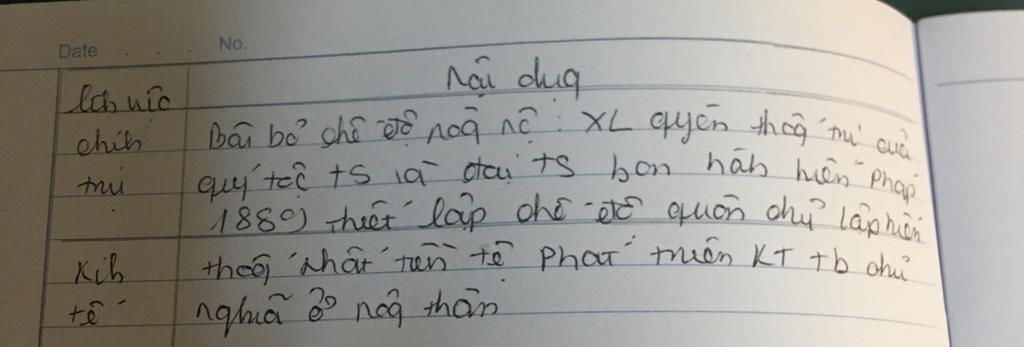 Date . . . No.
lĩnh vực nội dug
chíh Bãi bỏ chế độ nog nô : XL quyền thog trị của
trị quý tộc TS là đại TS ban hàh hiến pháp
1889) thiết lập chế độ quân chủ lập hiến
Kih thog nhất tiền tệ phát triển KT tb chủ
tế nghĩa ở nog thôn